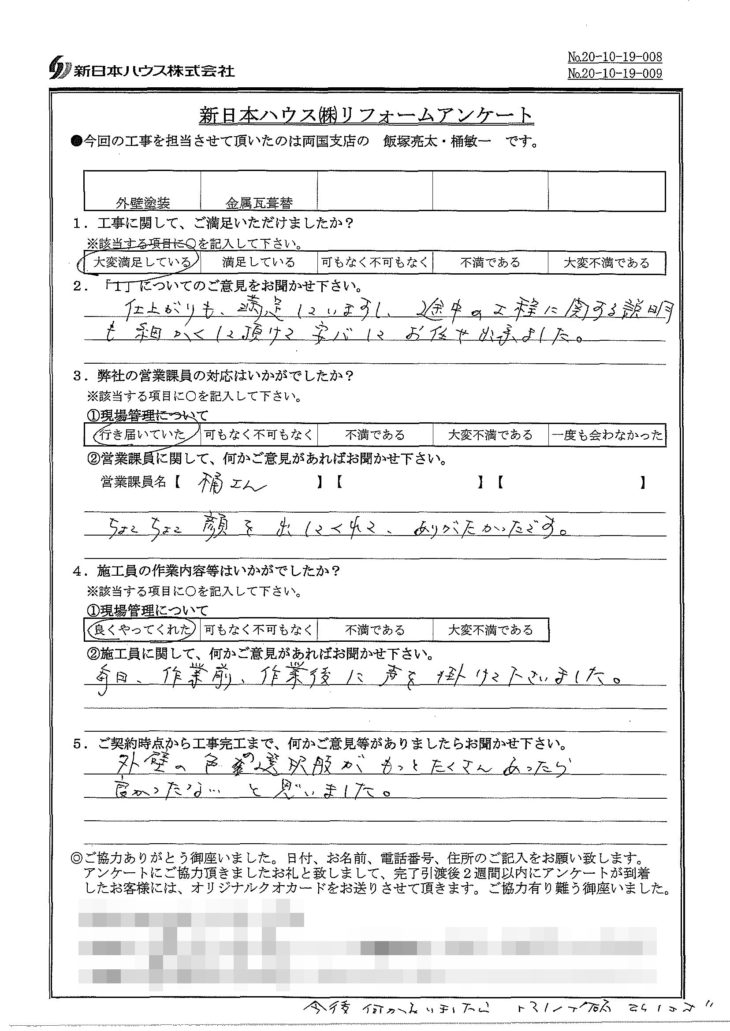 新日本ハウス株式会社
No.20-10-19-008
No.20-10-19-009
新日本ハウス㈱リフォームアンケート
●今回の工事を担当させて頂いたのは両国支店の 飯塚亮太・桶敏一 です。
外壁塗装 金属瓦葺替
1．工事に関して、ご満足いただけましたか？
※該当する項目に○を記入して下さい。
大変満足している 満足している 可もなく不可もなく 不満である 大変不満である
2．「1」についてのご意見をお聞かせ下さい。
仕上がりも、満足していますし、途中の工程に関する説明
も細かくして頂けて安心してお任せ出来ました。
3．弊社の営業課員の対応はいかがでしたか？
※該当する項目に○を記入して下さい。
①現場管理について
行き届いていた 可もなく不可もなく 不満である 大変不満である 一度も会わなかった
②営業課員に関して、何かご意見があればお聞かせ下さい。
営業課員名【 桶さん 】【 】【 】
ちょこちょこ顔を出してくれて、ありがたかったです。
4．施工員の作業内容等はいかがでしたか？
※該当する項目に○を記入して下さい。
①現場管理について
良くやってくれた 可もなく不可もなく 不満である 大変不満である
②施工員に関して、何かご意見があればお聞かせ下さい。
毎日、作業前、作業後に声を掛けて下さいました。
5．ご契約時点から工事完工まで、何かご意見等がありましたらお聞かせ下さい。
外壁の色の選択肢がもっとたくさんあったら
良かったな… と思いました。
◎ご協力ありがとう御座いました。日付、お名前、電話番号、住所のご記入をお願い致します。
アンケートにご協力頂きましたお礼と致しまして、完了引渡後２週間以内にアンケートが到着
したお客様には、オリジナルクオカードをお送りさせて頂きます。ご協力有り難う御座いました。
今後何かありましたら